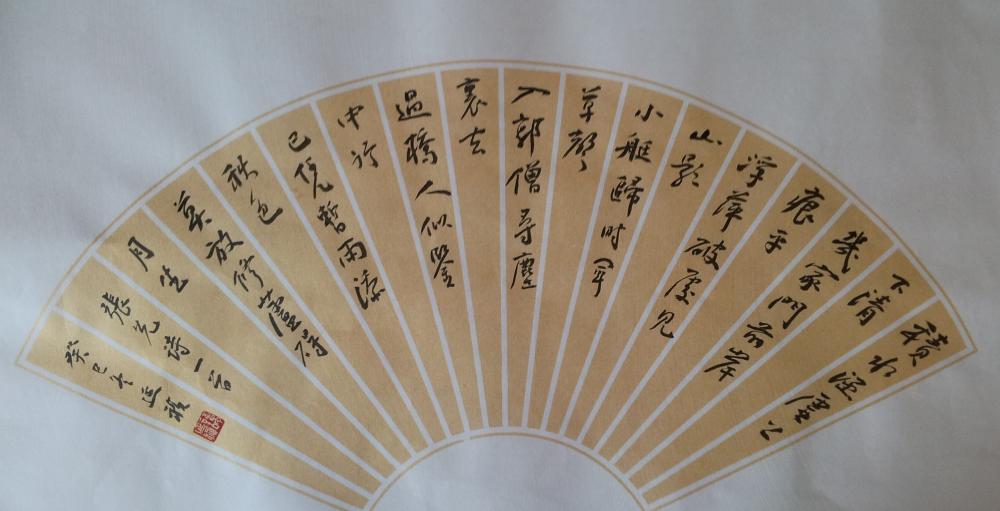 積水涵虛上
下清
幾家門前岸
痕平
浮萍破處見
山影
小艇歸时聞
草聲
入郭僧尋塵
裏去
過橋人似鑒
中行
已凭暫雨添
秋色
莫放修蘆碍
月生
張先詩一首
癸巳冬